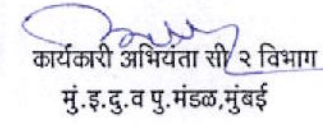 कार्यकारी अभियंता सी २ विभाग
मुं.इ.दु.व पु.मंडळ,मुंबई